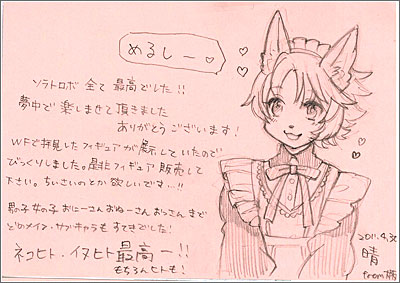 めるしー
ソラトロボ 全て 最高でした!!
夢中で楽しませて頂きました
ありがとうございます!
WFで拝見したフィギュアが展示していたので
びっくりしました。是非フィギュア販売して
下さい。ちいさいのとか欲しいです…!!
男の子女の子 おにーさんおねーさん おっさん まで
どのメイン・サブキャラも すてきでした!
ネコヒト・イヌヒト最高ー!!
もちろんヒトも!
2011.4.30
晴
from